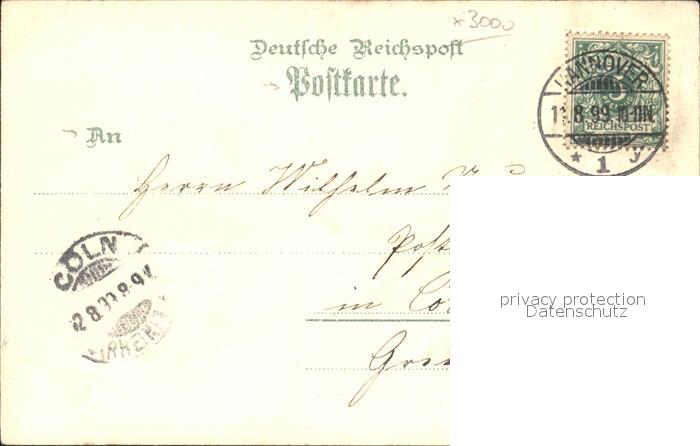 x3000
Deutsche Reichspost
Postkarte.
An
Herrn Wilhelm
Post
in
HANNOVER
8 99
REICHSPOST
* 1 y
CÖLN
(RHEIN)
privacy protection
Datenschutz